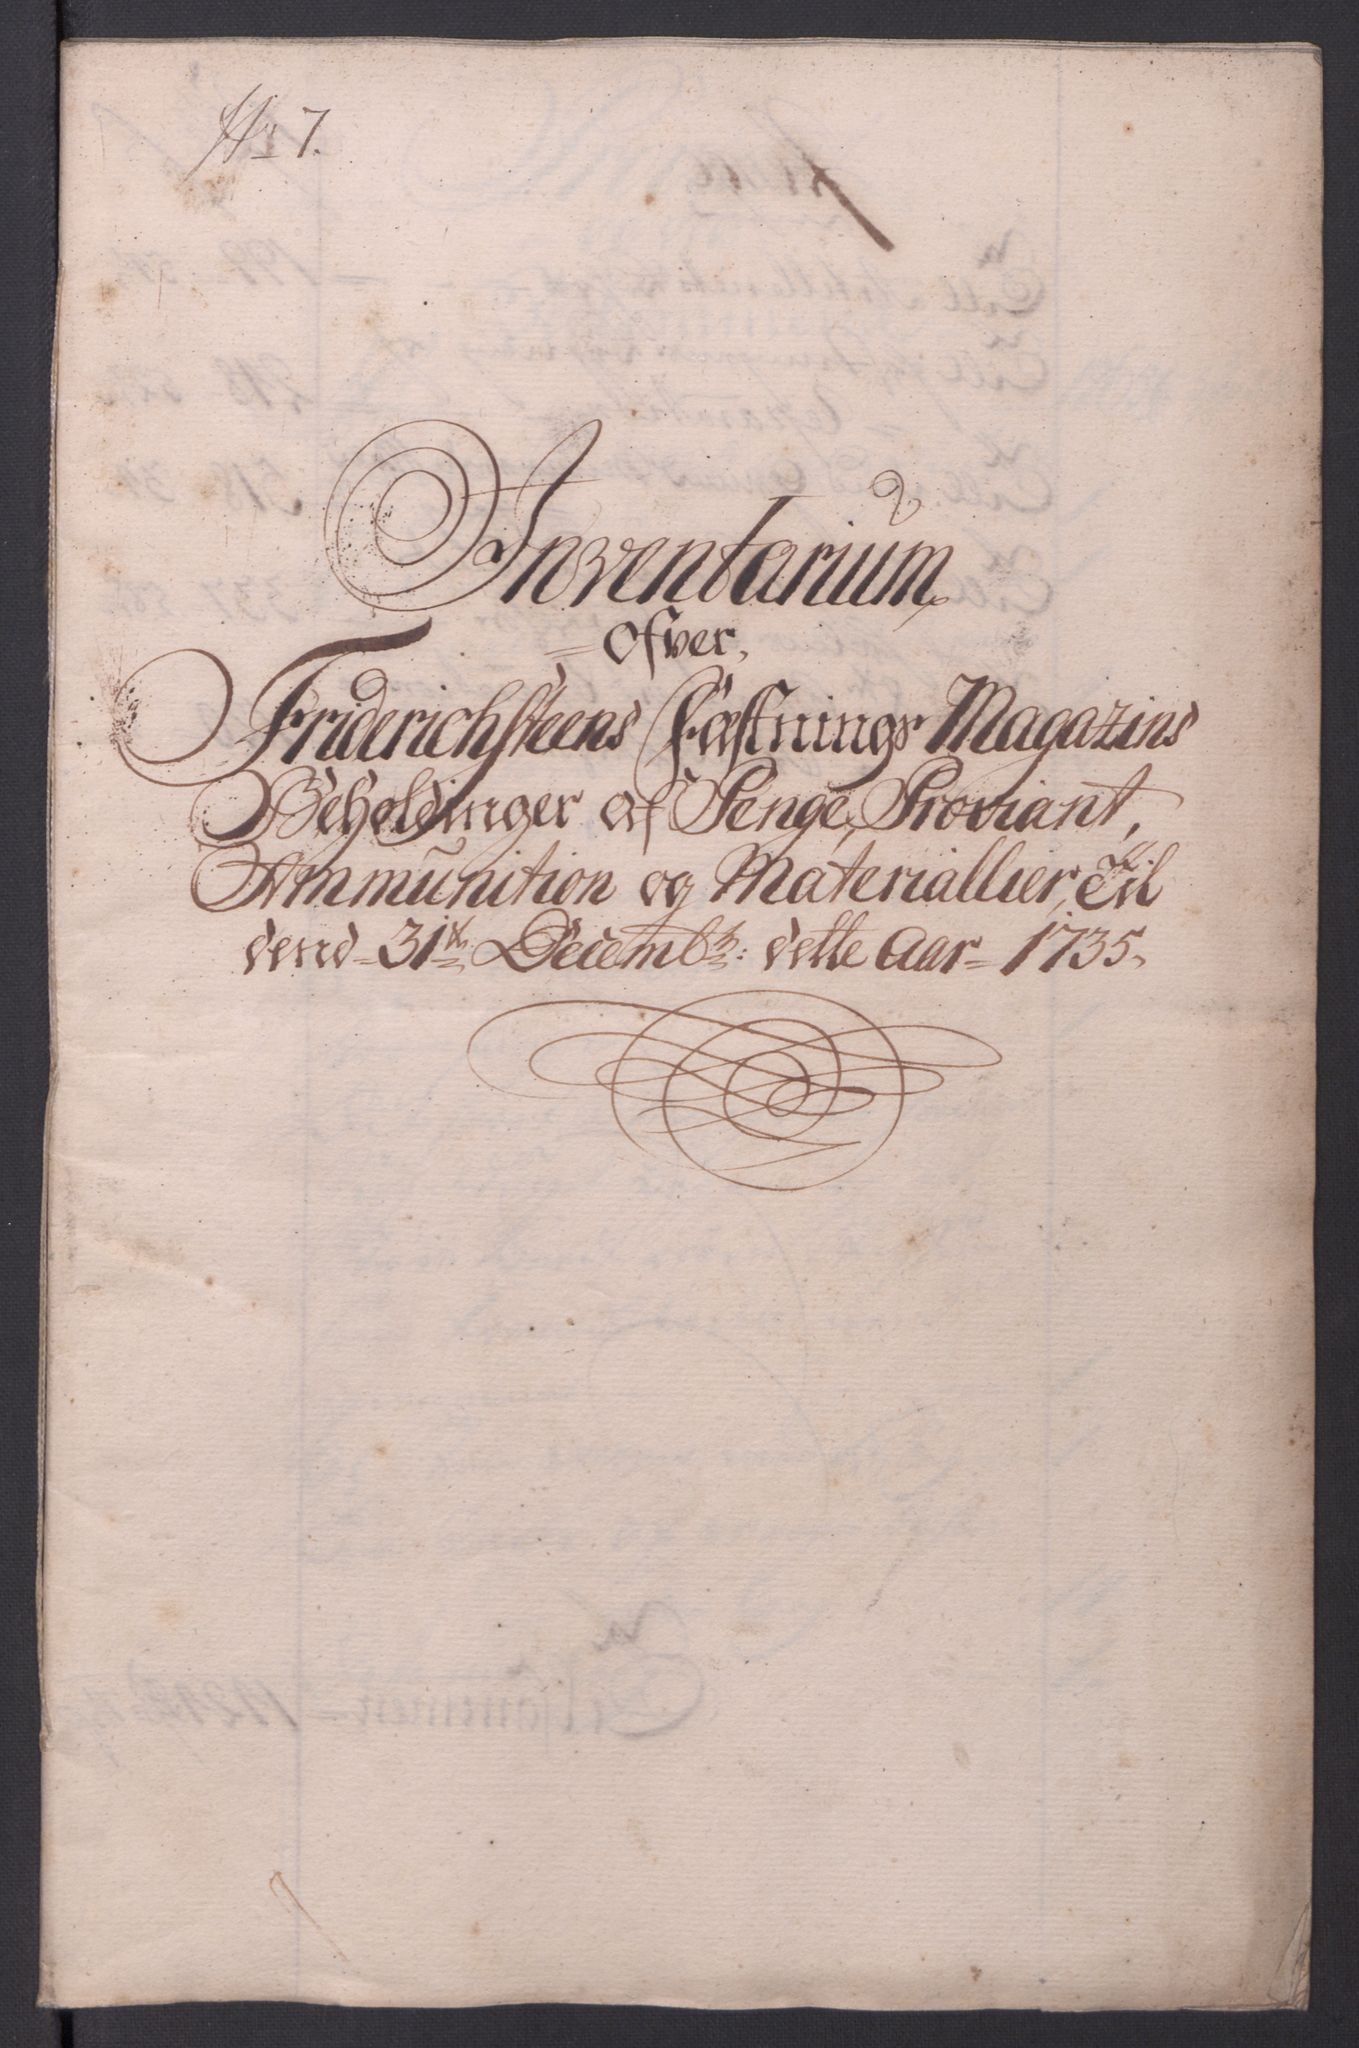 No 7.
Inventarium
Ofver,
Friderichsteens Fæstnings Magazins
Beholdinger af Penge, Proviant,
Ammunition og Materiallier, Til
dend 31te Decembr: dette Aar 1735.